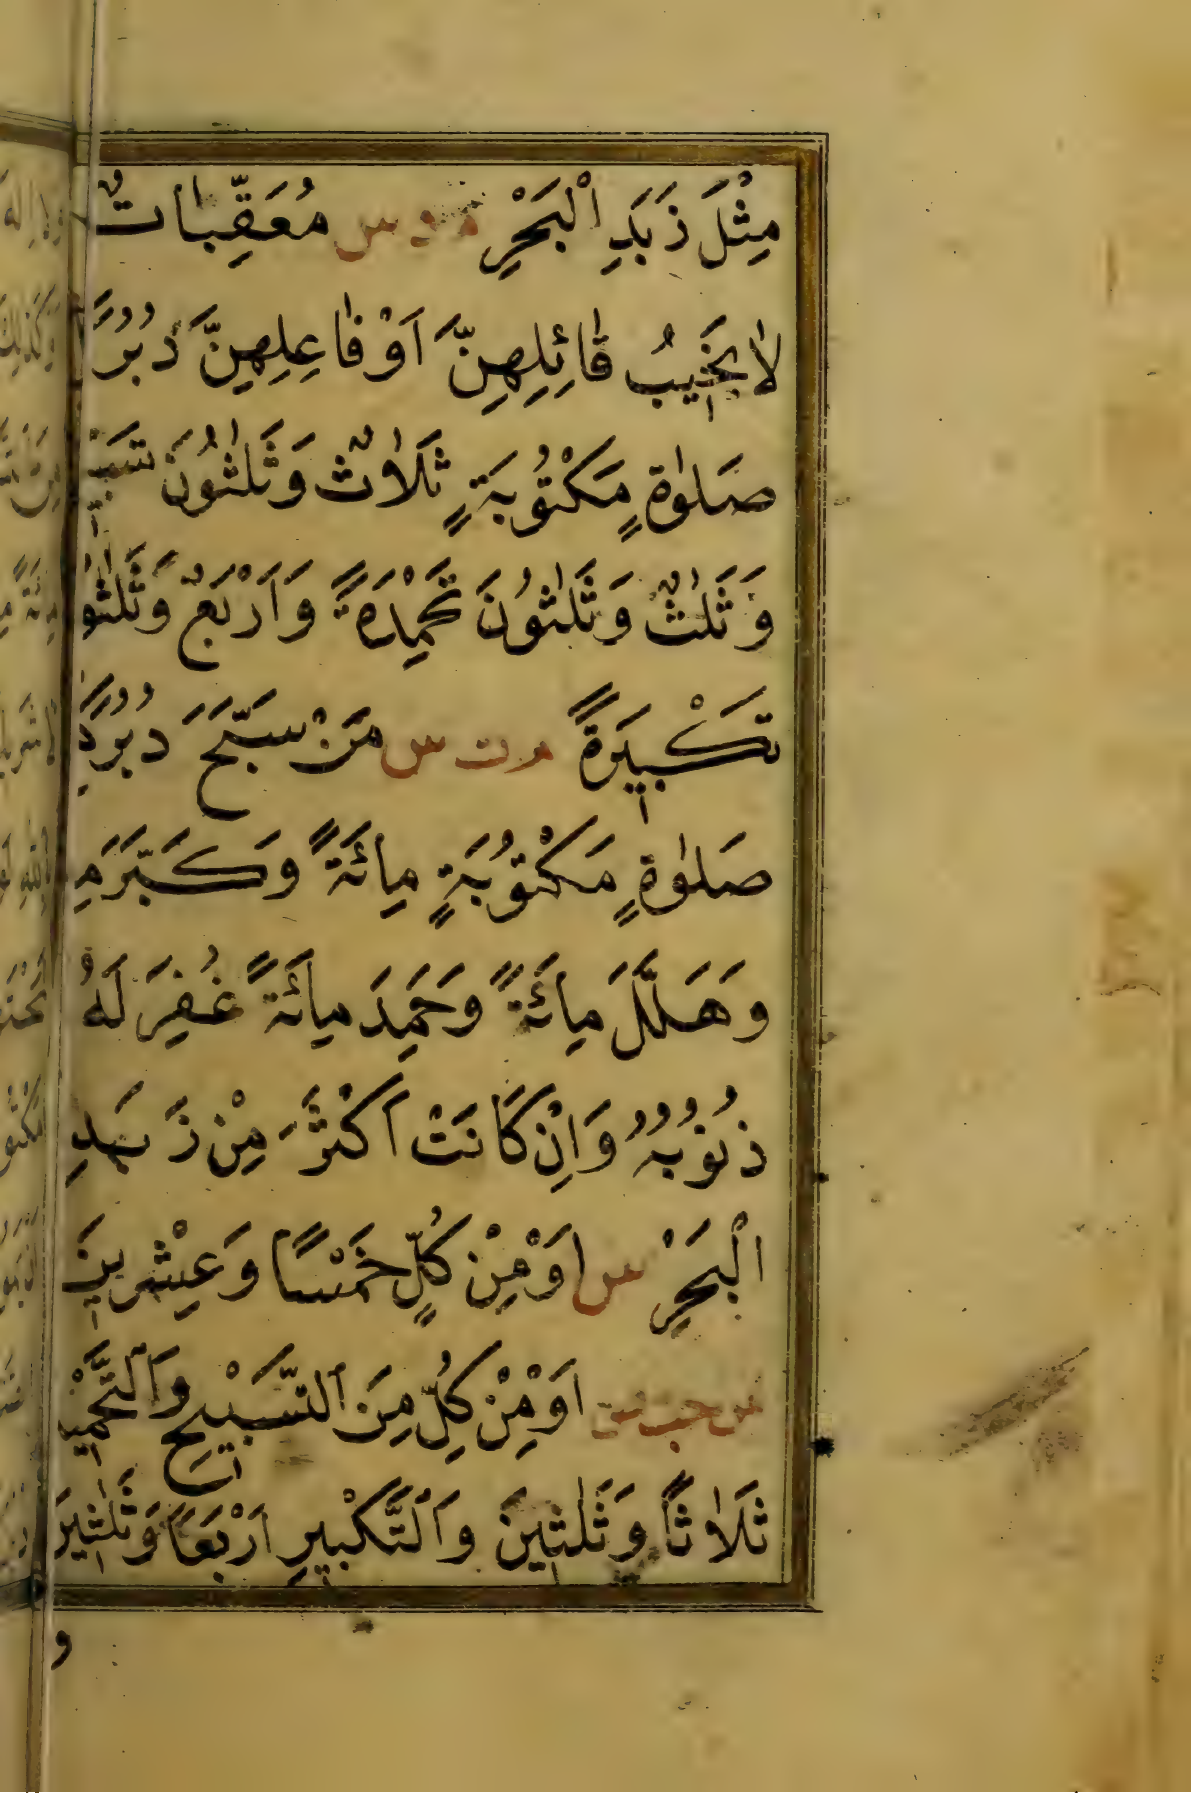 مِثْلَ زَبَدِ الْبَحْرِ م د س مُعَقِّبَاتٌ
لَا يَخِيبُ قَائِلُهُنَّ اَوْ فَاعِلُهُنَّ دُبُرَ
صَلٰوةٍ مَكْتُوبَةٍ ثَلَاثٌ وَثَلٰثُونَ تَسْبِ
وَثَلٰثٌ وَثَلٰثُونَ تَحْمِدَةً وَاَرْبَعٌ وَثَلٰثُو
تَكْبِيرَةً م ت س مَنْ سَبَّحَ دُبُرَ كُ
صَلٰوةٍ مَكْتُوبَةٍ مِائَةً وَكَبَّرَ مِ
وَهَلَّلَ مِائَةً وَحَمِدَ مِائَةً غُفِرَ لَهُ
ذُنُوبُهُ وَاِنْ كَانَتْ اَكْثَرَ مِنْ زَبَدِ
الْبَحْرِ س اَوْ مِنْ كُلٍّ خَمْسًا وَعِشْرِينَ
س حب مس اَوْ مِنْ كُلٍّ مِنَ التَّسْبِيحِ وَالتَّحْمِيدِ
ثَلَاثًا وَثَلٰثِينَ وَالتَّكْبِيرِ اَرْبَعًا وَثَلٰثِينَ
و